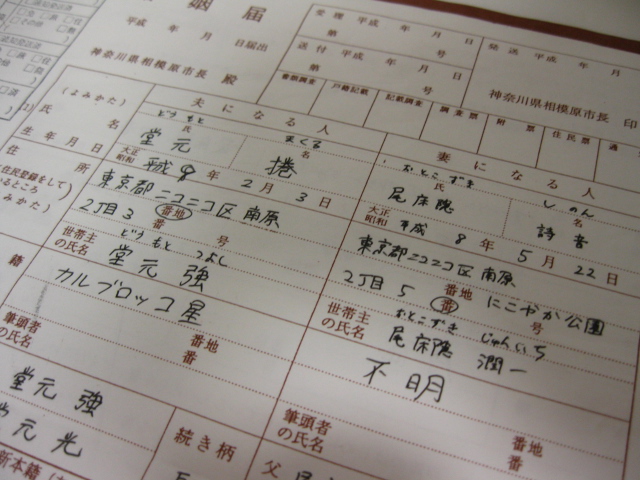 婚姻届
受理 平成 年 月 日
第 号
発送 平成 年 月
平成 年 月 日届出
送付 平成 年 月 日
第 号
神奈川県相模原市長 殿
神奈川県相模原市長 印
書類調査 戸籍記載 記載調査 調査票 附票 住民票 通
夫になる人
妻になる人
(よみかた)
どうもと まくる
おとこずき しのん
氏名
氏 名
堂元 捲
氏 名
尾床隠 詩音
生年月日
大正 昭和 平成 8年 2月 3日
大正 昭和 平成 8年 5月 22日
住所
東京都ニコニコ区南原
2丁目3 番地 番 号
東京都ニコニコ区南原
2丁目5 番地 番 にこやか公園 号
どうもと つよし
世帯主の氏名 堂元 強
おとこずき じゅんいち
世帯主の氏名 尾床隠 潤一
籍
カルブロッコ星
番地 番
不明
番地 番
筆頭者の氏名
筆頭者の氏名
堂元 強
元 光
続き柄
父
新本籍